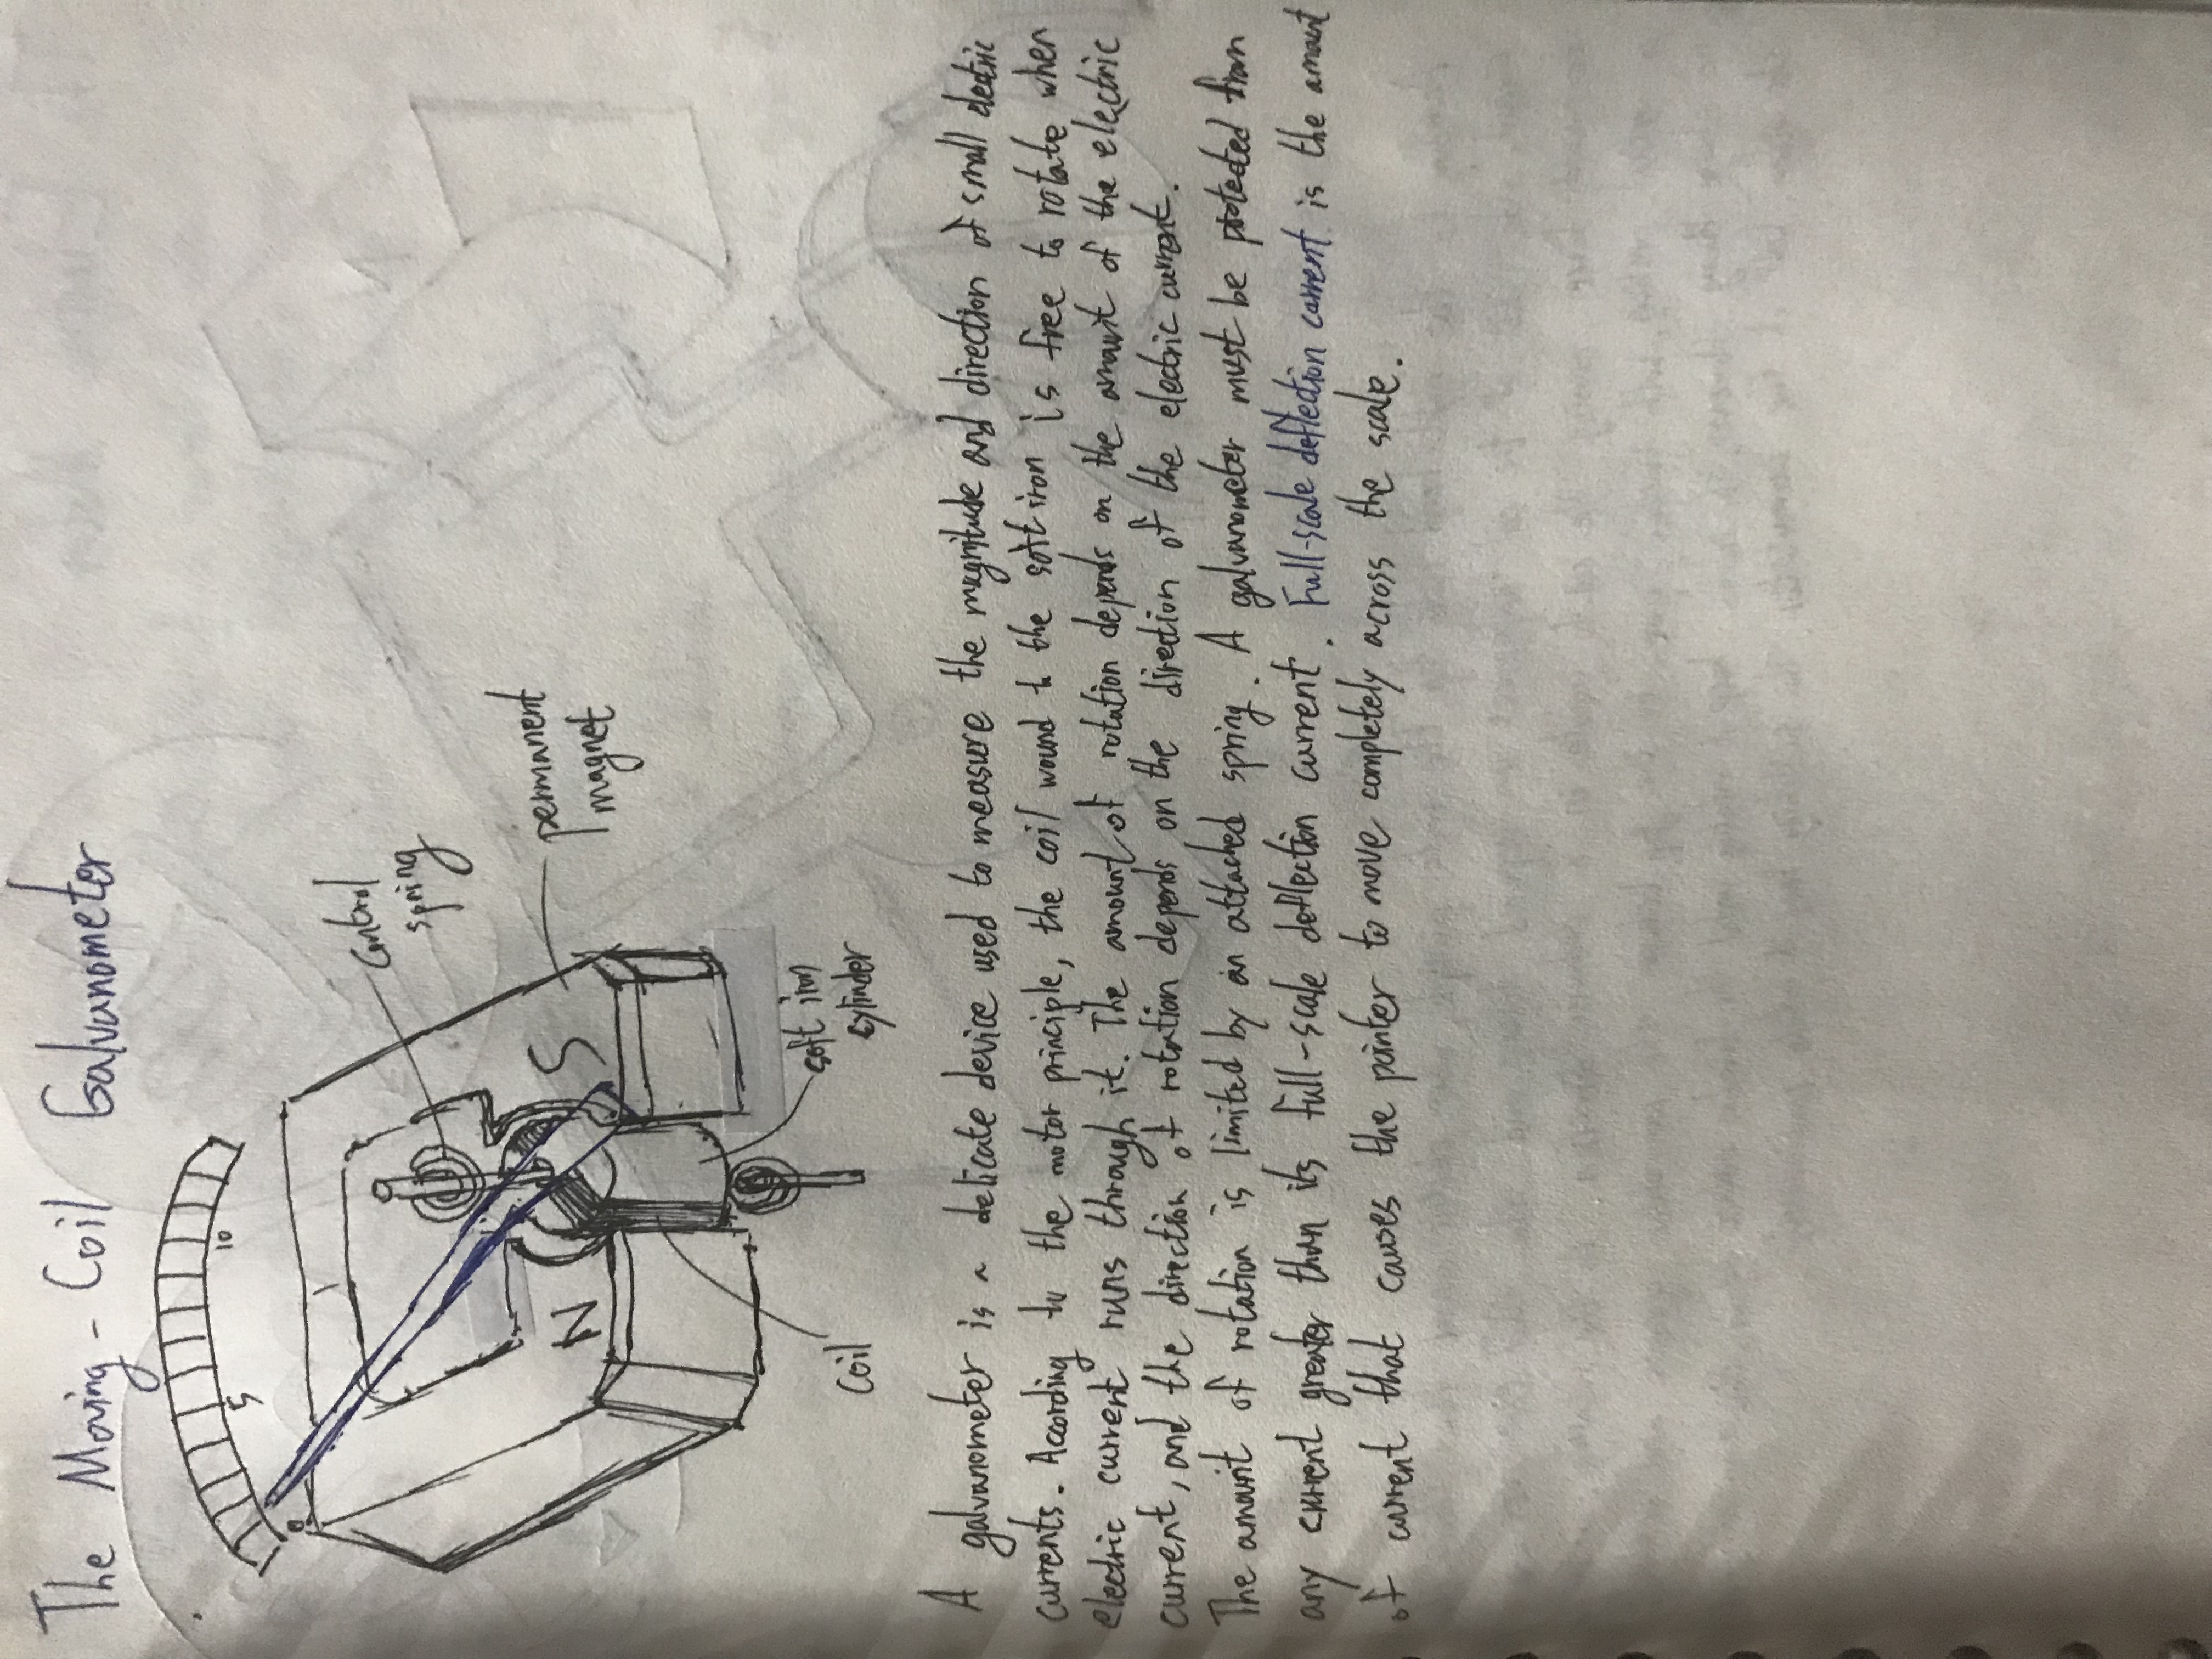 The Moving-Coil Galvanometer
0
5
10
control
spring
permanent
magnet
N
S
soft iron
cylinder
coil
A galvanometer is a delicate device used to measure the magnitude and direction of small electric
currents. According to the motor principle, the coil wound to the soft iron is free to rotate when
electric current runs through it. The amount of rotation depends on the amount of the electric
current, and the direction of rotation depends on the direction of the electric current.
The amount of rotation is limited by an attached spring. A galvanometer must be protected from
any current greater than its full-scale deflection current. Full-scale deflection current is the amount
of current that causes the pointer to move completely across the scale.